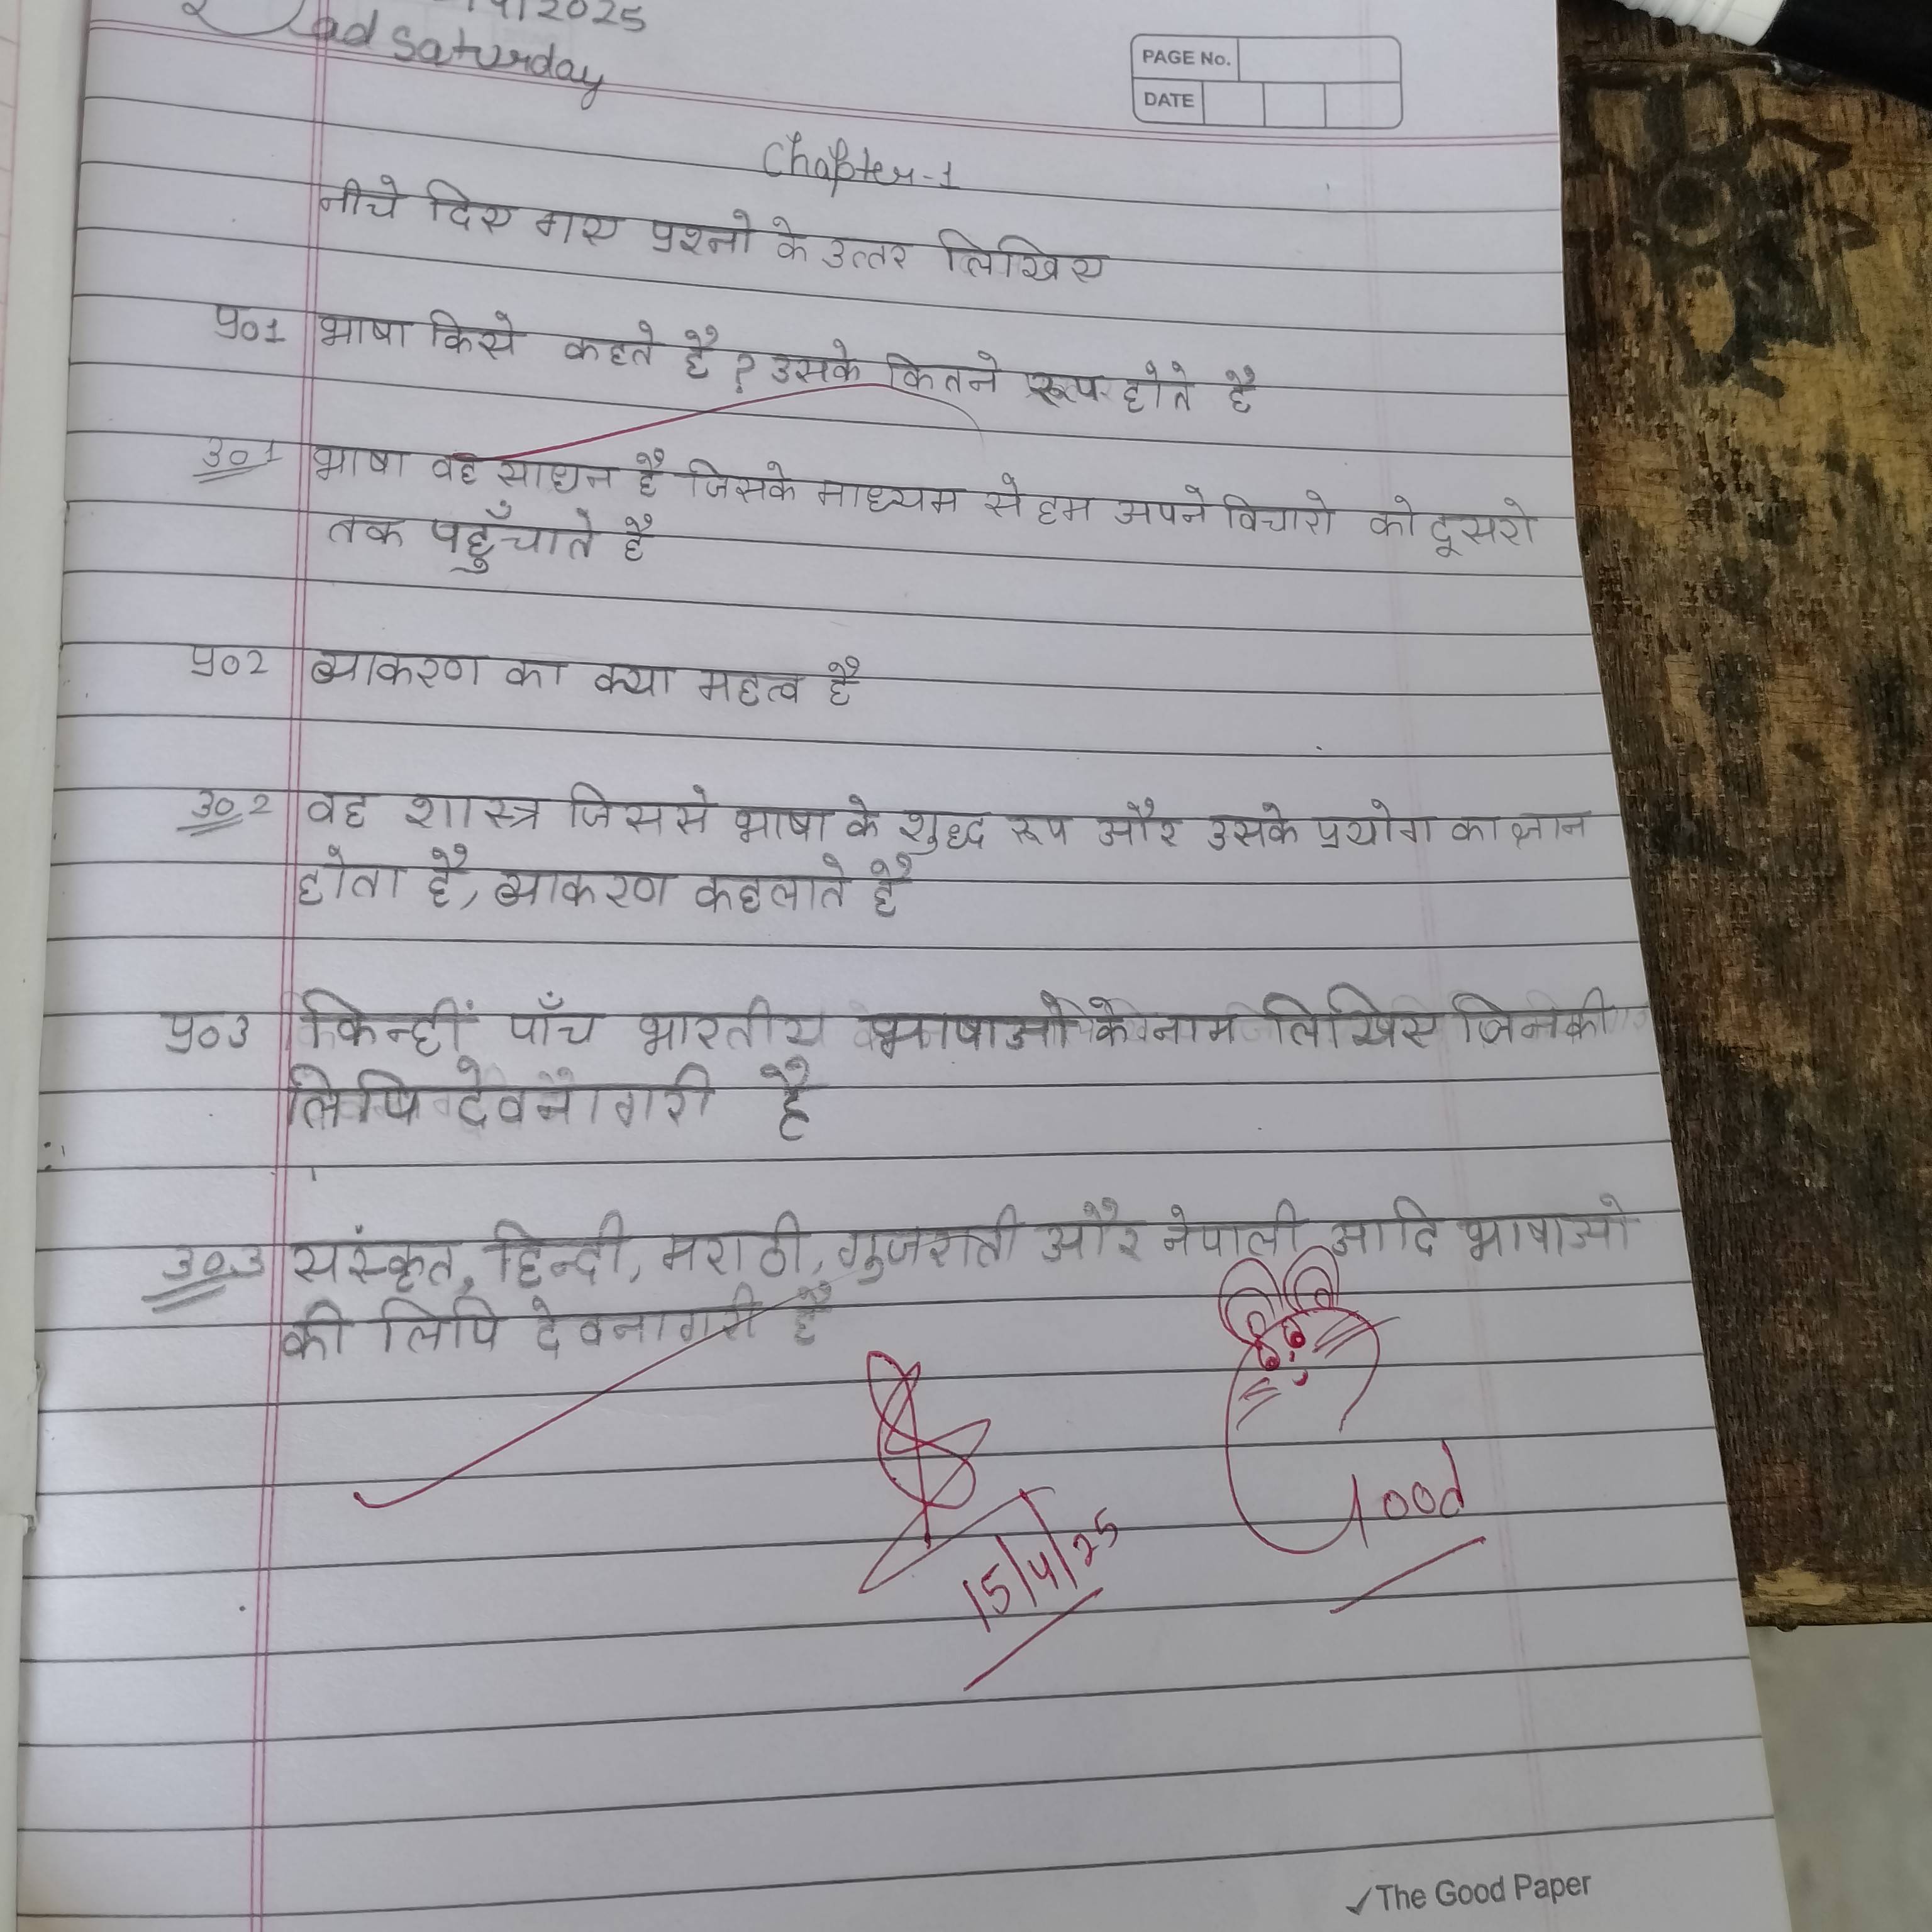 2025
Saturday
PAGE No.
DATE
Chapter-1
नीचे दिए गए प्रश्नो के उत्तर लिखिए
प्र०1 भाषा किसे कहते है ? उसके कितने रूप होते है
उ०1 भाषा वह साधन है जिसके माध्यम से हम अपने विचारो को दूसरो
तक पहुँचाते है
प्र०2 व्याकरण का क्या महत्व है
उ०2 वह शास्त्र जिससे भाषा के शुध्द रूप और उसके प्रयोग का ज्ञान
होता है, व्याकरण कहलाते है
प्र०3 किन्हीं पाँच भारतीय भाषाओ के नाम लिखिए जिनकी
लिपि देवनागरी है
उ०3 संस्कृत, हिन्दी, मराठी, गुजराती और नेपाली आदि भाषाओ
की लिपि देवनागरी है
Good
15/4/25
The Good Paper